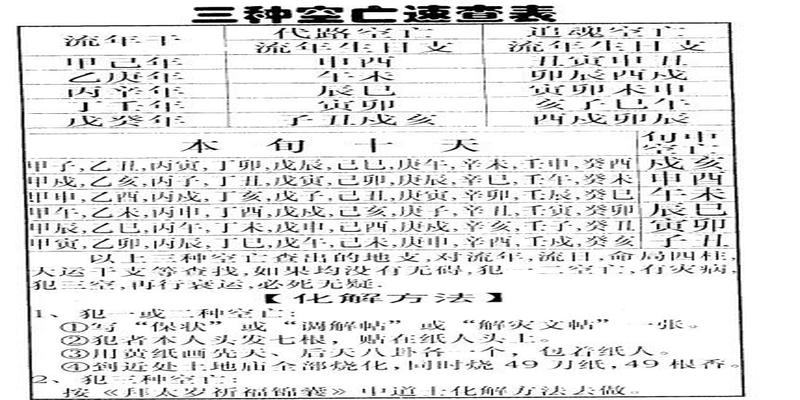 三种空亡速查表
流年干 代路空亡 追魂空亡
流年生日支 流年生日支
甲己年 申酉 丑寅申丑
乙庚年 午未 卯辰酉戌
丙辛年 辰巳 寅卯未申
丁壬年 寅卯 亥子巳午
戊癸年 子丑戌亥 酉戌卯辰
本旬十天 旬中空亡
甲子,乙丑,丙寅,丁卯,戊辰,己巳,庚午,辛未,壬申,癸酉 戌亥
甲戌,乙亥,丙子,丁丑,戊寅,己卯,庚辰,辛巳,壬午,癸未 申酉
甲申,乙酉,丙戌,丁亥,戊子,己丑,庚寅,辛卯,壬辰,癸巳 午未
甲午,乙未,丙申,丁酉,戊戌,己亥,庚子,辛丑,壬寅,癸卯 辰巳
甲辰,乙巳,丙午,丁未,戊申,己酉,庚戌,辛亥,壬子,癸丑 寅卯
甲寅,乙卯,丙辰,丁巳,戊午,己未,庚申,辛酉,壬戌,癸亥 子丑
以上三种空亡查出的地支,对流年,流日,命局四柱,
大运干支等查找,如果均没有无碍,犯一二空亡,有灾病,
犯三空,再行衰运,必死无疑.
【化解方法】
1、犯一或二种空亡:
①写“保状”或“调解帖”或“解灾文帖”一张。
②犯者本人头发七根,贴在纸人头上。
③用黄纸画先天、后天八卦各一个,包着纸人。
④到近处土地庙全部烧化,同时烧49刀纸,49根香。
2、犯三种空亡:
按《拜太岁祈福锦囊》中道士化解方法去做。